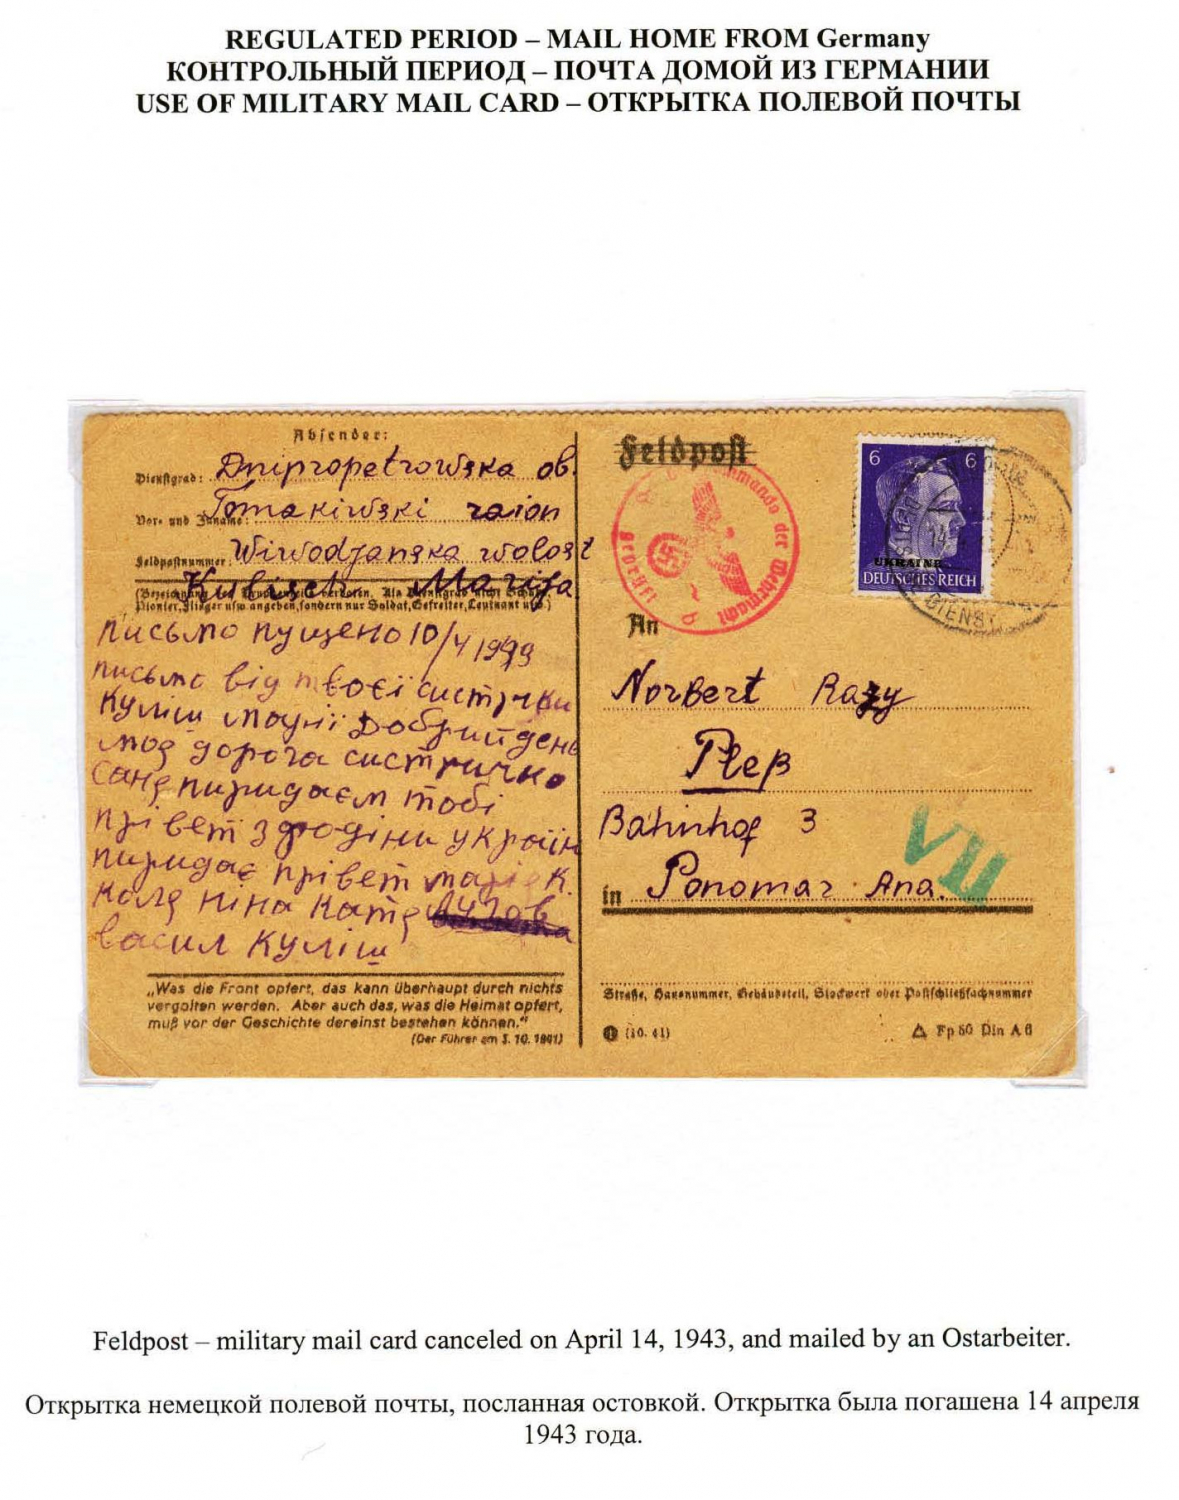 REGULATED PERIOD – MAIL HOME FROM Germany
КОНТРОЛЬНЫЙ ПЕРИОД – ПОЧТА ДОМОЙ ИЗ ГЕРМАНИИ
USE OF MILITARY MAIL CARD – ОТКРЫТКА ПОЛЕВОЙ ПОЧТЫ
Absender:
Dienstgrad: Dnipropetrowska ob.
Vor- und Zuname: Tomakiwski raion
Feldpostnummer: Wiwodjanska wolost
Kulisch Marija
Pionier, Flieger usw. angeben, sondern nur Soldat, Gefreiter, Leutnant usw.)
письмо пущено 10/4 1943
письмо від твоєї систрички
Куліш Добрий день
моя дорога систричко
Саня пиридаєм тобі
прівет з
пиридає прівет К.
Коля Ніна Катя
васил Куліш
„Was die Front opfert, das kann überhaupt durch nichts
vergolten werden. Aber auch das, was die Heimat opfert,
muß vor der Geschichte dereinst bestehen können."
(Der Führer am 3. 10. 1941)
Feldpost
der Wehrmacht
geprüft
b
6 6
UKRAINE
DEUTSCHES REICH
14
DIENST
An
Norbert Razy
Pleß
Bahnhof 3
VII
in Ponomar Ana.
Straße, Hausnummer, Gebäudeteil, Stockwert oder Postschließfachnummer
(10. 41)
Fp 50 Din A 6
Feldpost – military mail card canceled on April 14, 1943, and mailed by an Ostarbeiter.
Открытка немецкой полевой почты, посланная остовкой. Открытка была погашена 14 апреля
1943 года.